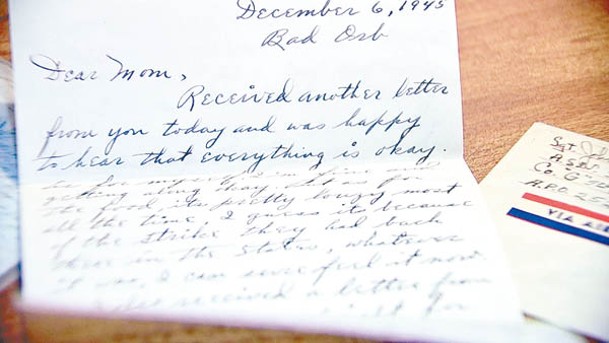 December 6, 1945
Bad Orb
Dear Mom,
Received another letter
from you today and was happy
to hear that everything is okay.
As for myself, I'm fine and
getting along okay. But as for
the food its pretty lousy most
all the time. I guess its because
of the strike they had back
there in the States, whatever
it was, I can sure feel it now.
received a letter from
for
Sgt
Co. G
A.P.O.
VIA AIR